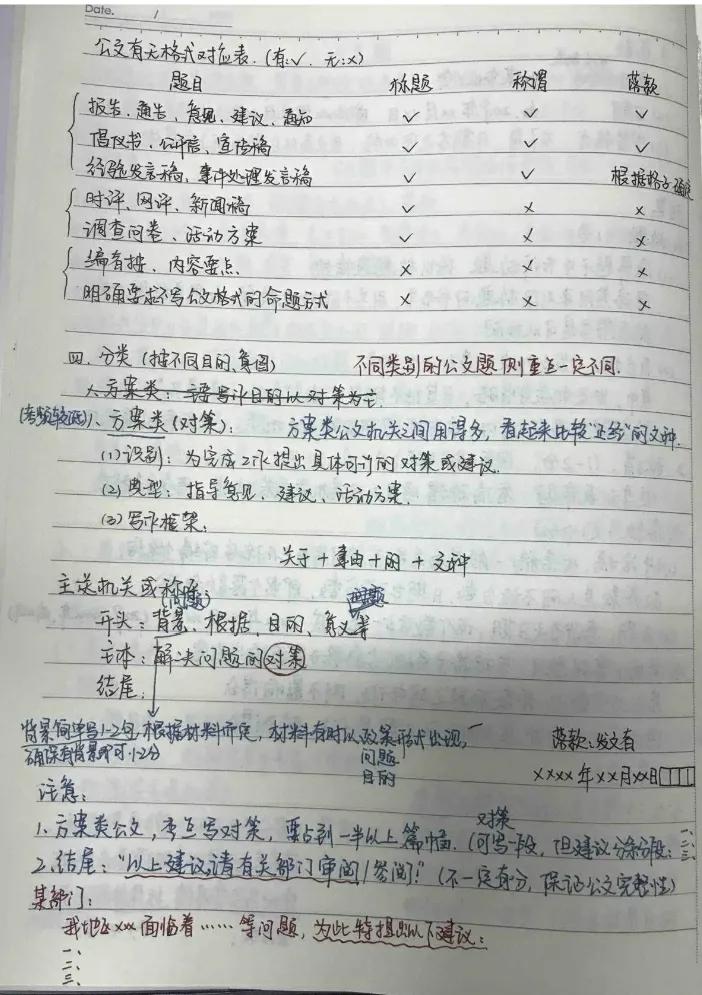 Date. /
公文有无格式对应表.(有:√. 无:×)
题目 标题 称谓 落款
报告、通告、意见、建议、通知 √ √ √
倡仪书、公开信、宣传稿 √ √ √
经验发言稿,事件处理发言稿 √ √ 根据格子确定
时评、网评、新闻稿 √ × ×
调查问卷、活动方案 √ × ×
编者按、内容要点 × × ×
明确要求不写公文格式的命题方式 × × ×
四. 分类(按不同目的、意图) 不同类别的公文题侧重点一定不同.
方案类:主要写作目的以对策为主.
(考频较低)1、方案类(对策): 方案类公文机关之间用得多,看起来比较“正经”的文种.
(1)识别:为完成工作提出具体可行的对策或建议.
(2)典型:指导意见、建议、活动方案.
(3)写作框架:
关于+事由+的+文种
主送机关或称谓
(问题)
开头:背景、根据、目的、意义等
主体:解决问题的对策
结尾:
背景简单写1-2句,根据材料而定,材料有时以政策形式出现, 落款:发文者
确保有背景即可1-2分 问题
目的 ××××年××月××日
注意:
1.方案类公文,重点写对策,要占到一半以上篇幅.(对策可写一段,但建议分条分段: 一、二、三、
2.结尾:“以上建议,请有关部门审阅/参阅!”(不一定有分,保证公文完整性)
某部门:
我地区xxx面临着……等问题,为此特提出以下建议:
一、
二、
三、